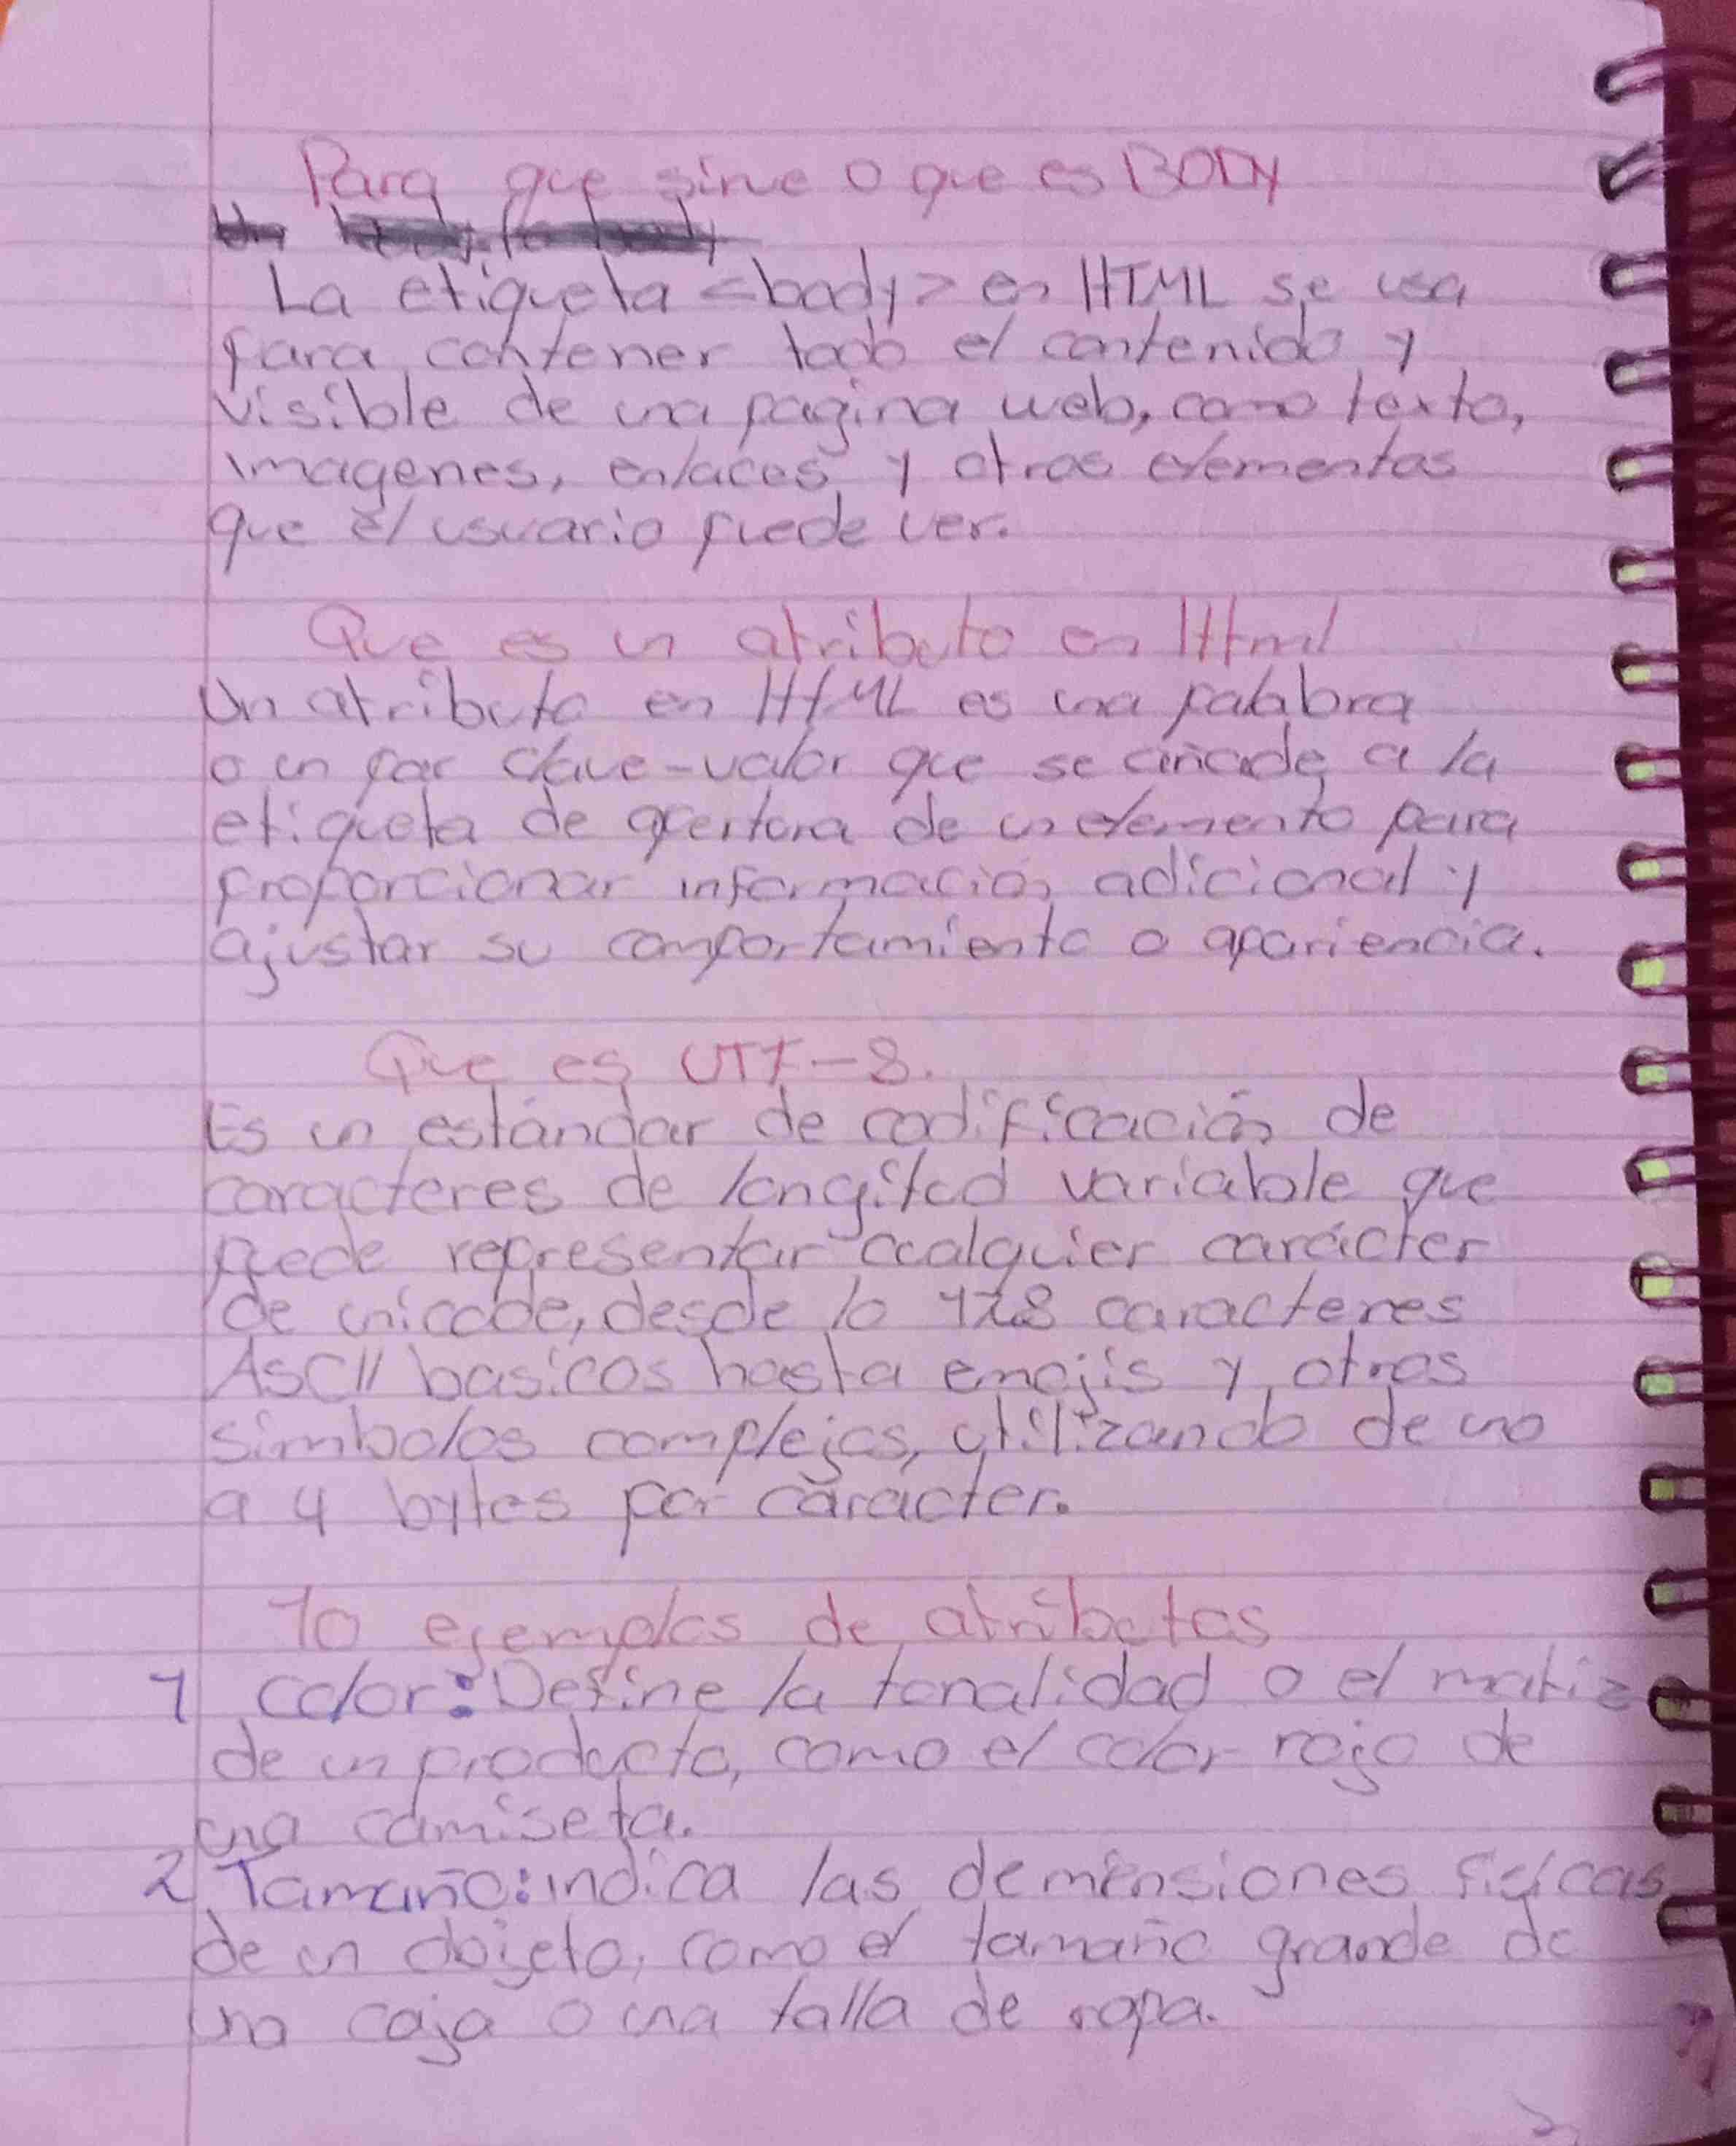 Para que sirve o que es BODY
La etiqueta <body> en HTML se usa
para contener todo el contenido y
visible de una pagina web, como texto,
imagenes, enlaces y otros elementos
que el usuario puede ver.
Que es un atributo en Html
Un atributo en HTML es una palabra
o un par clave-valor que se añade a la
etiqueta de apertura de un elemento para
proporcionar información adicional y
ajustar su comportamiento o apariencia.
Que es UTF-8.
Es un estándar de codificación de
caracteres de longitud variable que
puede representar cualquier carácter
de unicode, desde lo 128 caracteres
ASCII basicos hasta emojis y otros
simbolos complejos, utilizando de uno
a 4 bytes por carácter.
10 ejemplos de atributos
1 Color: Define la tonalidad o el matiz
de un producto, como el color rojo de
una camiseta.
2 Tamaño: indica las demensiones fisicas
de un objeto, como el tamaño grande de
una caja o una talla de ropa.